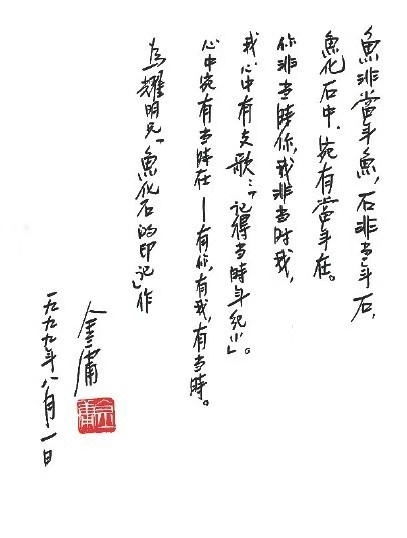 魚非當年魚，石非當年石，
魚化石中，宛有當年在。
你非当時你，我非当时我，
我心中有支歌：「記得当時年纪小」。
心中宛有当時在—有你，有我，有当時。
为耀明兄「魚化石的印记」作
金庸
金庸
一九九九年八月一日